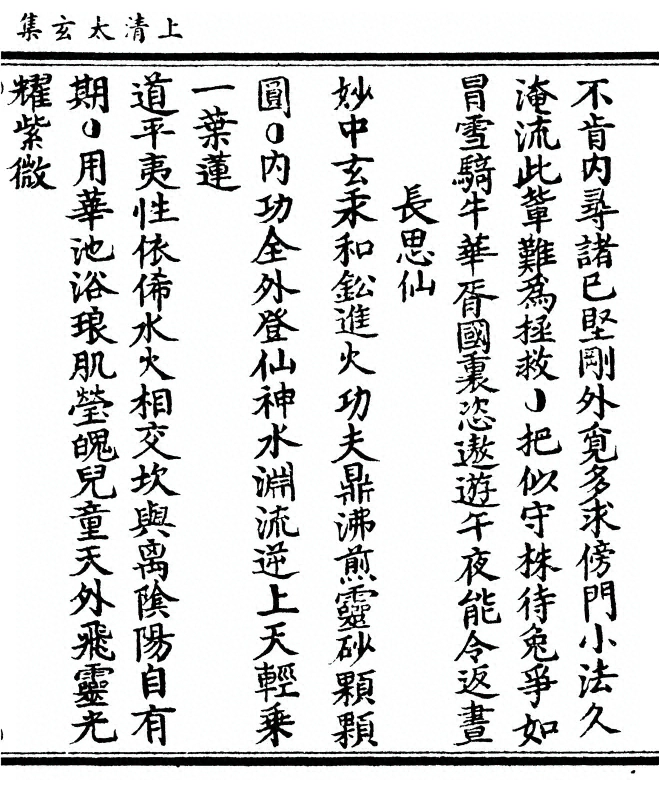 上清太玄集
不肯内尋諸已堅剛外覓多求傍門小法久
淹流此輩難為拯救〇把似守株待兔爭如
冒雪騎牛華胥國裏恣遨遊午夜能令返晝
長思仙
妙中玄汞和鈆進火功夫鼎沸煎靈砂顆顆
圓〇内功全外登仙神水淵流逆上天輕乘
一葉蓮
道平夷性依俙水火相交坎與离陰陽自有
期〇用華池浴琅肌瑩魄兒童天外飛靈光
耀紫微